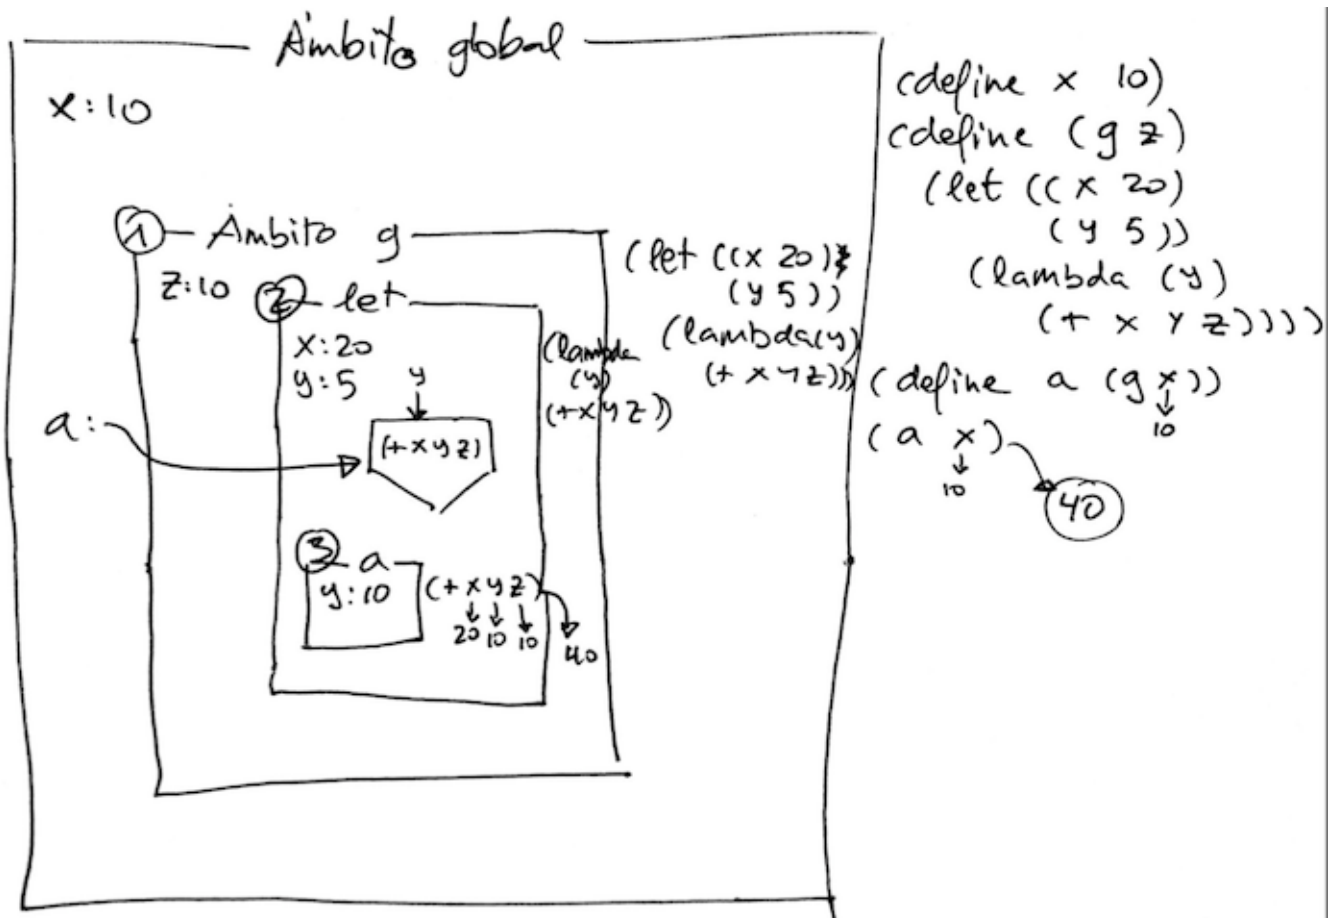 Ámbito global
x:10
1 Ámbito g
z:10
2 let
x:20
y:5
y
(+ x y z)
a:
3 a
y:10
(+ x y z)
20 10 10
40
(lambda
(y)
(+ x y z))
(let ((x 20)
(y 5))
(lambda (y)
(+ x y z)))
(define x 10)
(define (g z)
(let ((x 20)
(y 5))
(lambda (y)
(+ x y z))))
(define a (g x))
10
(a x)
10
40